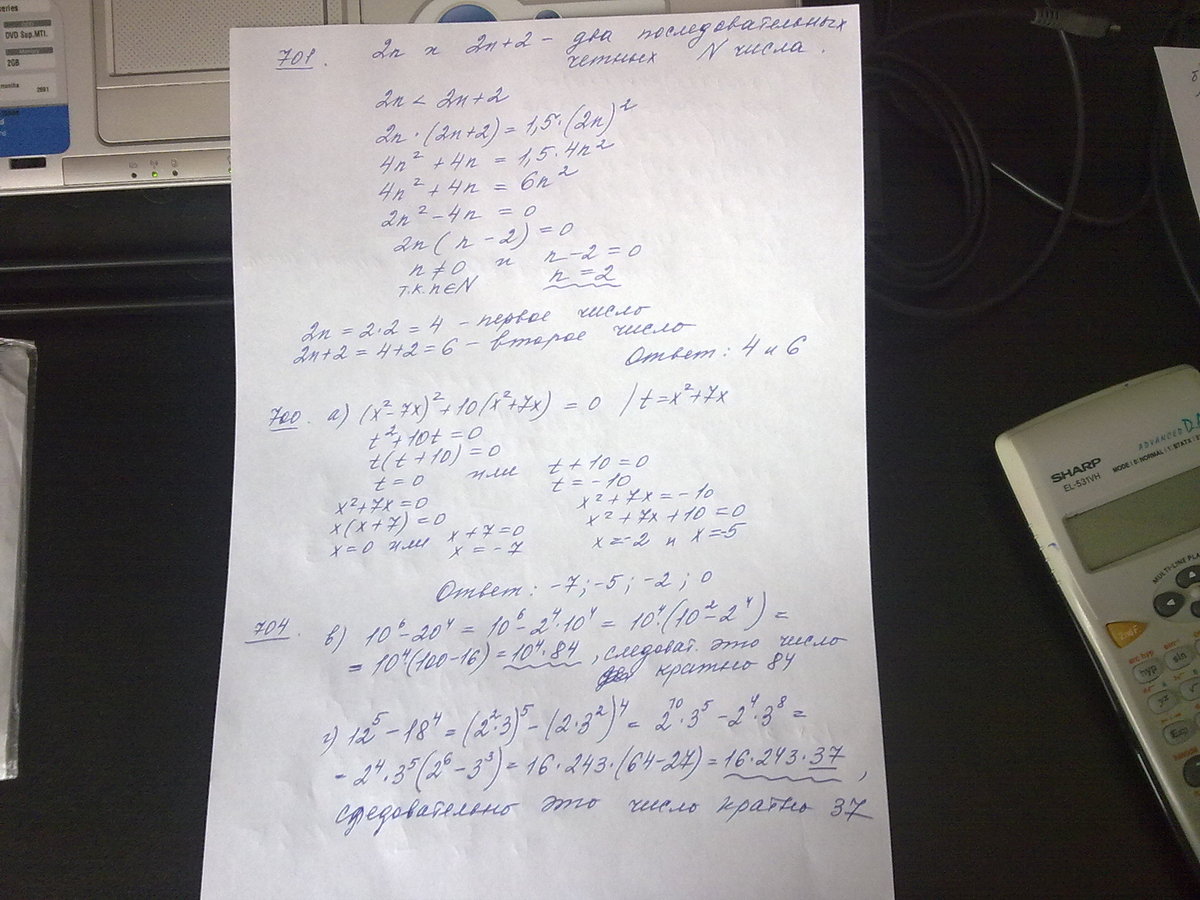 series
DVD Sup.MTI.
Memory
2GB
2091
701. 2n и 2n+2 - два последовательных
четных N числа.
2n < 2n+2
2n·(2n+2) = 1,5·(2n)²
4n² + 4n = 1,5·4n²
4n² + 4n = 6n²
2n² - 4n = 0
2n(n - 2) = 0
n ≠ 0 и n - 2 = 0
т.к. n∈N n = 2
2n = 2·2 = 4 - первое число
2n+2 = 4+2 = 6 - второе число
Ответ: 4 и 6
700. а) (x² - 7x)² + 10(x² + 7x) = 0 / t = x² + 7x
t² + 10t = 0
t(t + 10) = 0
t = 0 или t + 10 = 0
t = -10
x² + 7x = 0 x² + 7x = -10
x(x + 7) = 0 x² + 7x + 10 = 0
x = 0 или x + 7 = 0 x = -2 и x = -5
x = -7
Ответ: -7; -5; -2; 0
704. в) 10⁶ - 20⁴ = 10⁶ - 2⁴·10⁴ = 10⁴·(10² - 2⁴) =
= 10⁴(100 - 16) = 10⁴·84, следоват. это число
кратно 84
г) 12⁵ - 18⁴ = (2²·3)⁵ - (2·3²)⁴ = 2¹⁰·3⁵ - 2⁴·3⁸ =
- 2⁴·3⁵(2⁶ - 3³) = 16·243·(64 - 27) = 16·243·37,
следовательно это число кратно 37
ADVANCED D.A
SHARP
EL-531VH
MODE : 0: NORMAL, 1: STAT
MULTI-LINE PLA
2ndF
hyp
sin
Exp